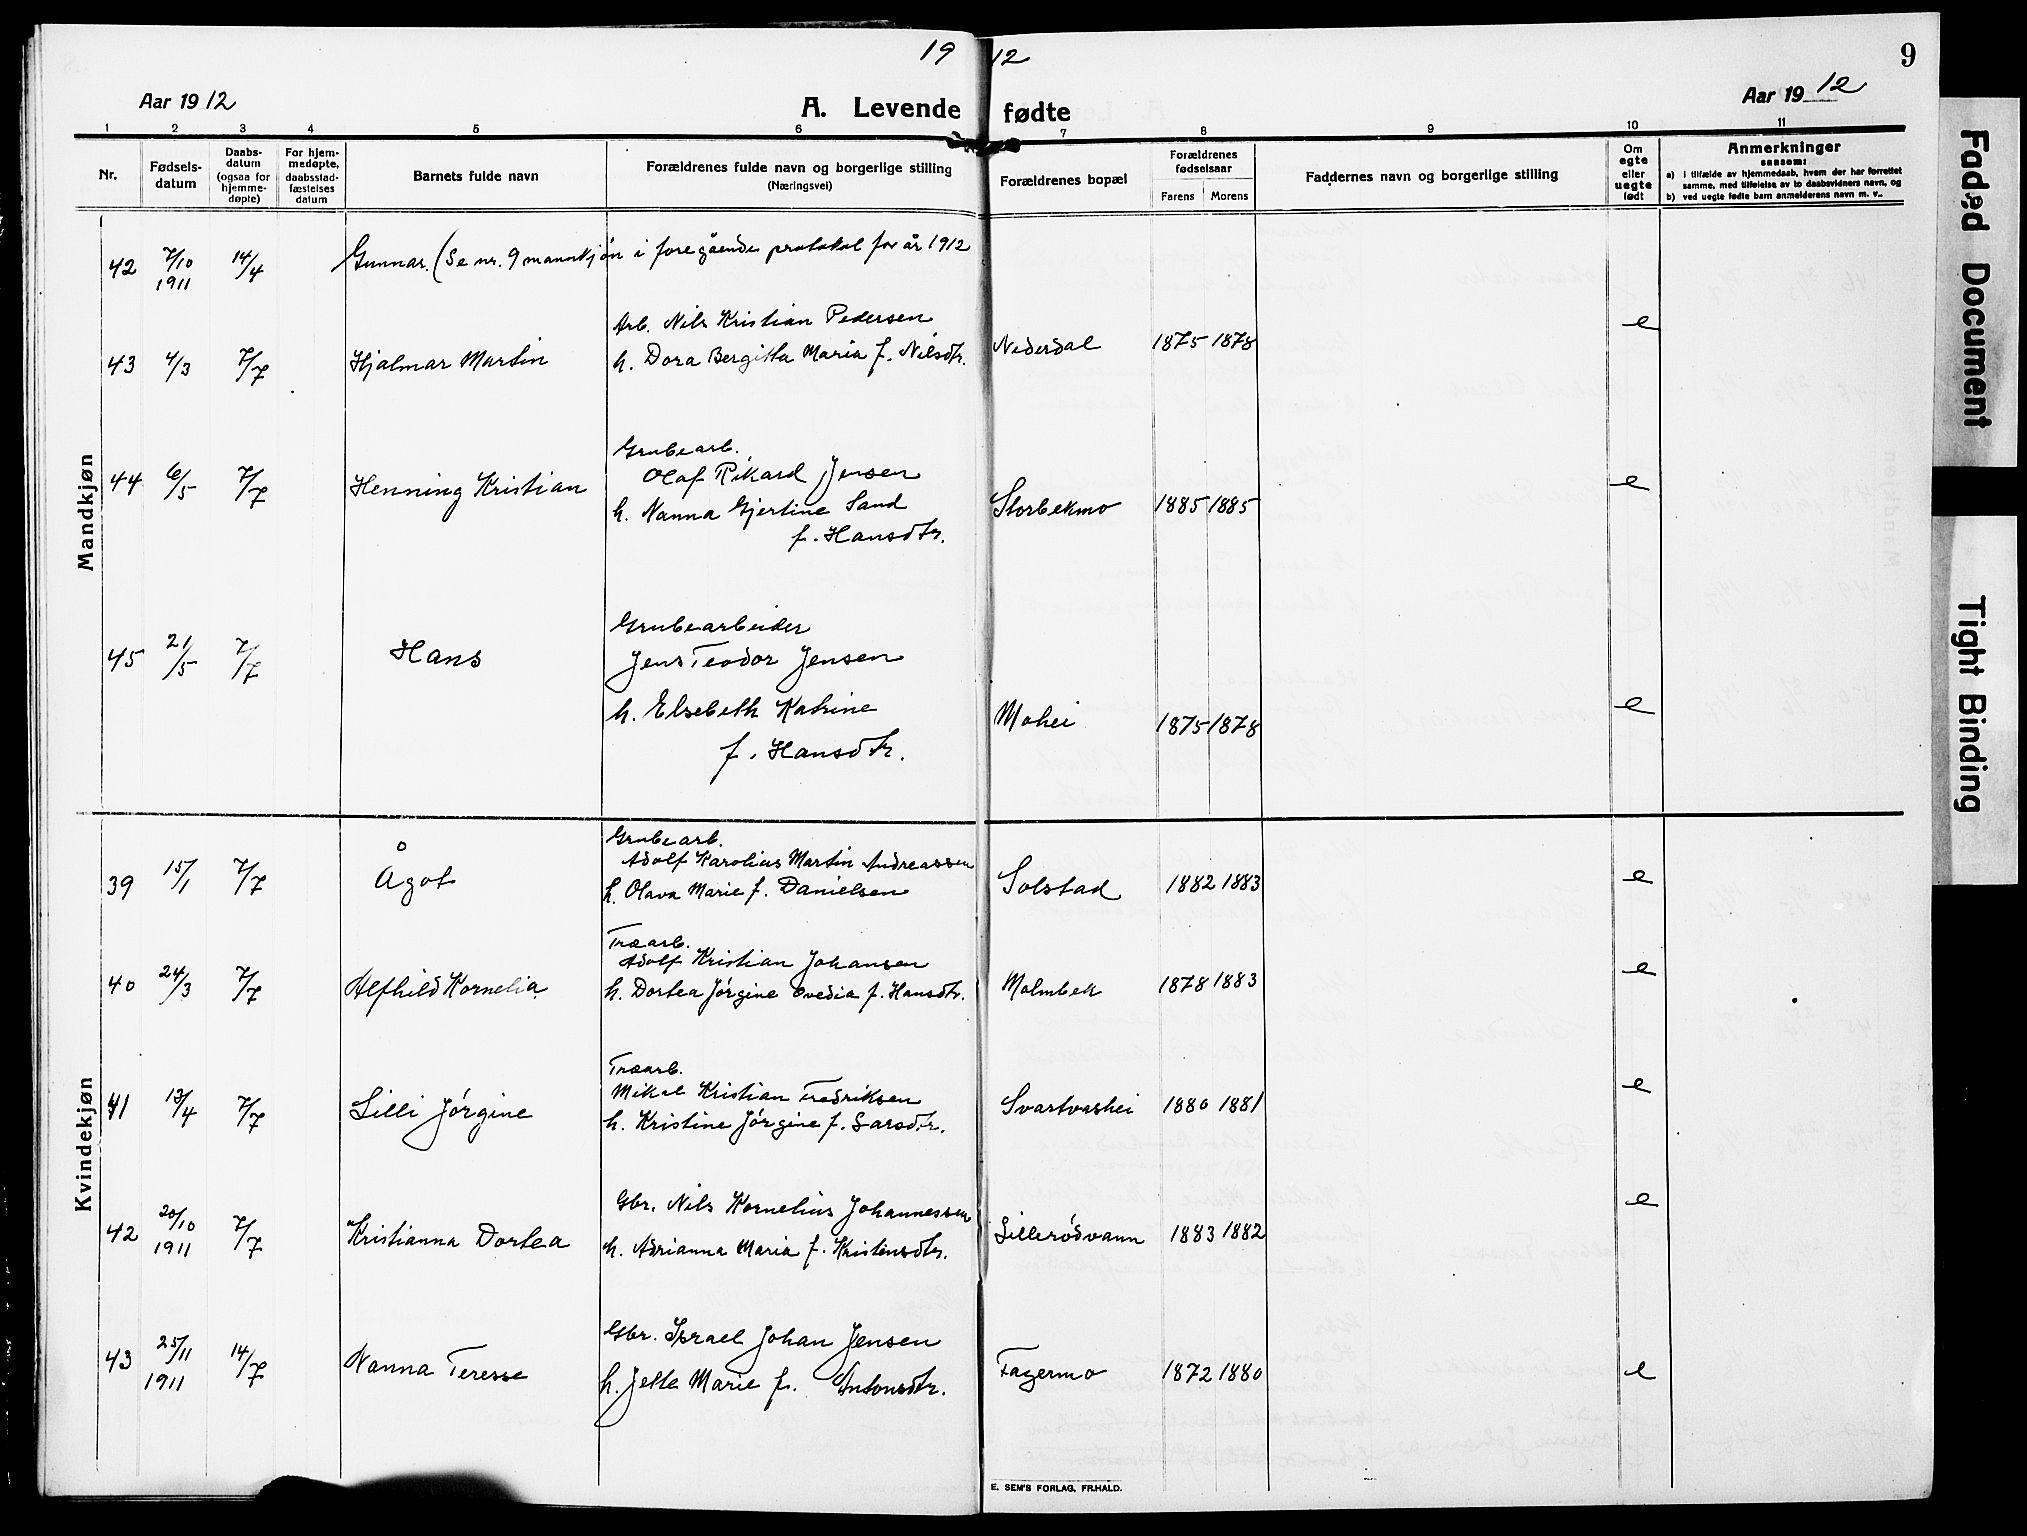 19 12
9
Aar 1912
A. Levende fødte
Aar 1912
1 2 3 4 5 6 7 8 9 10 11
Nr.
Fødsels-
datum
Daabs-
datum
(ogsaa for
hjemme-
døpte)
For hjem-
medøpte,
daabsstad-
fæstelses
datum
Barnets fulde navn
Forældrenes fulde navn og borgerlige stilling
(Næringsvei)
Forældrenes bopæl
Forældrenes
fødselsaar
Farens Morens
Faddernes navn og borgerlige stilling
Om
egte
eller
uegte
født
Anmerkninger
saasom:
a) i tilfælde av hjemmedaab, hvem der har forrettet
samme, med tilføielse av to daabsvidners navn, og
b) ved uegte fødte barn anmelderens navn m. v..
Mandkjøn
42 7/10 1911 14/4 Gunnar. (Se nr. 9 mannkjøn i foregående protokol for år 1912
Arb. Nils Kristian Pedersen
43 4/3 7/7 Hjalmar Martin h. Dora Bergitta Maria f. Nilsdtr. Nederdal 1875 1878 e
Grubearb.
Olaf Rikard Jensen
44 6/5 7/7 Henning Kristian h. Nanna Gjertine Sand Storbekmo 1885 1885 e
f. Hansdtr.
Grubearbeider
45 21/5 7/7 Hans Jens Teodor Jensen
h. Elsebeth Katrine Mohei 1875 1878 e
f. Hansdtr.
Kvindekjøn
Grubearb.
Adolf Karolius Martin Andreassen
39 15/1 7/7 Ågot h. Olava Marie f. Danielsen Solstad 1882 1883 e
Træarb.
Adolf Kristian Johansen
40 24/3 7/7 Alfhild Kornelia h. Dortea Jörgine Ovedia f. Hansdtr. Molmbek 1878 1883 e
Træarb.
Mikal Kristian Fredriksen
41 13/4 7/7 Lilli Jörgine h. Kristine Jörgine f. Larsdtr. Svartvashei 1880 1881 e
Gbr. Nils Kornelius Johannessen
42 20/10 1911 7/7 Kristianna Dortea h. Adrianna Maria f. Kristensdtr. Lillerödvann 1883 1882 e
Gbr. Israel Johan Jensen
43 25/11 1911 14/7 Nanna Teresse h. Jelle Marie f. Antonsdtr. Fagermo 1872 1880 e
E. SEM'S FORLAG, FR.HALD.
Faded Document
Tight Binding